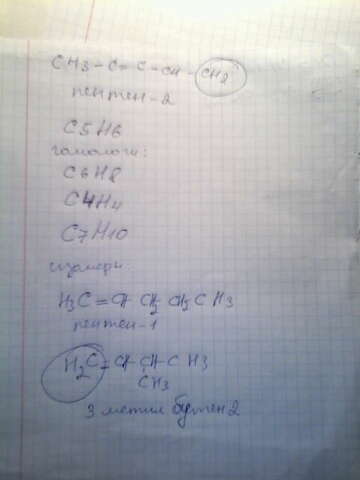 CH3 - C = C - CH - CH3
пентен - 2
C5H6
гомологи:
C6H8
C4H4
C7H10
изомеры
H3C = CH CH2 CH2 CH3
пентен - 1
H2C = CH CH - CH3
CH3
3 метил бутен 2